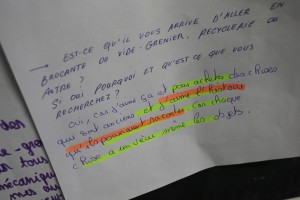 → EST-CE QU'IL VOUS ARRIVE D'ALLER EN
BROCANTE OU VIDE-GRENIER, RECYCLERIE OU
AUTRE ?
SI OUI POURQUOI ET QU'EST-CE QUE VOUS
RECHERCHEZ ?
Oui, car j'aime ça et pour acheter des choses
qui sont anciens et j'aime l'histoire
qu'ils pourraient raconter car chaque
chose a un vécu même les objets.
des
e-gre
tous
mécanique